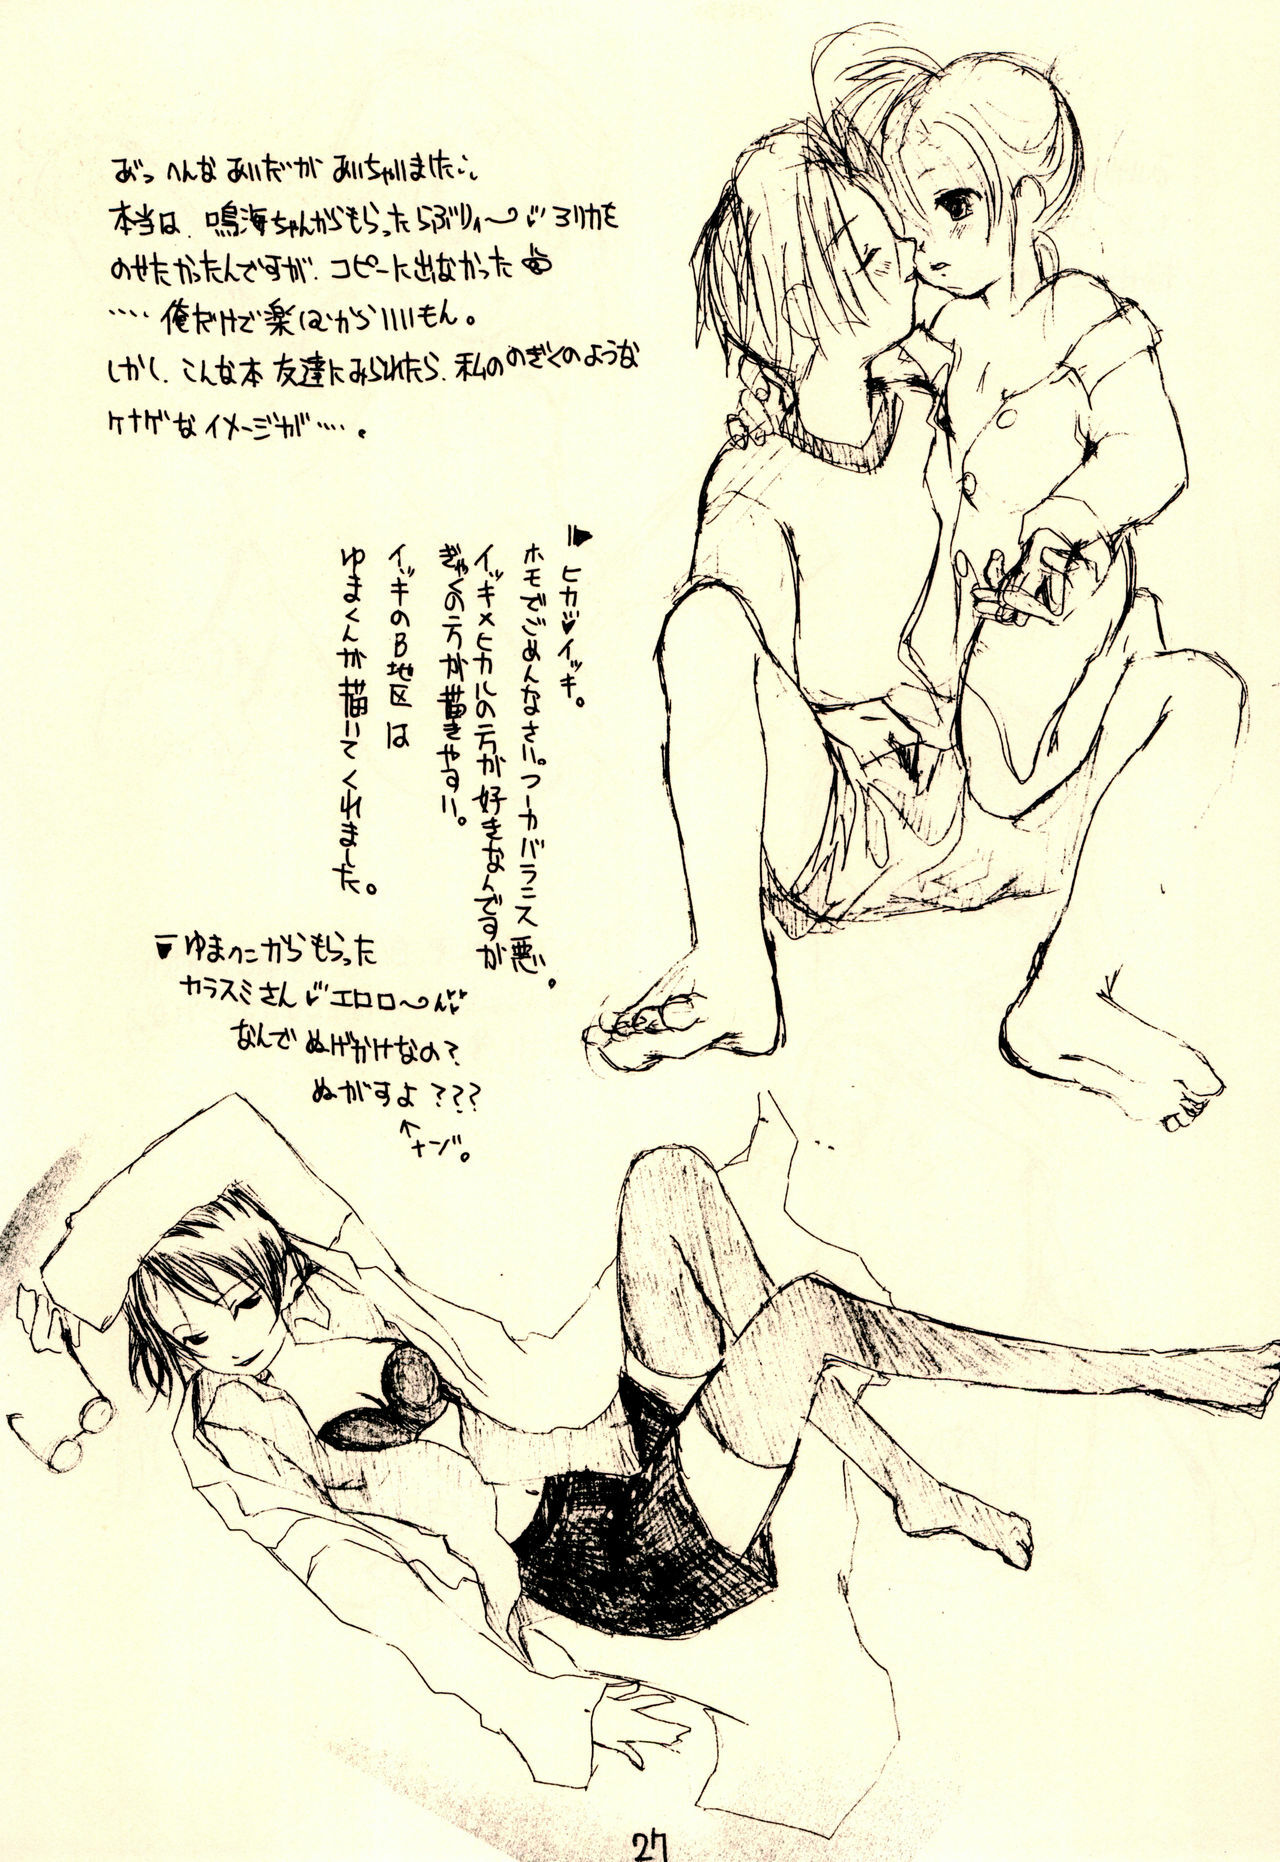 あっ へんな あいだが あいちゃいました
本当は、鳴海ちゃんからもらったらぶりぃ〜♡ ヨリカを
のせたかったんですが、コピーに出なかった
‥‥俺だけで楽しむからいいもん。
しかし、こんな本 友達にみられたら、私ののぎくのような
ケナゲなイメージが‥‥。
ヒカ♡イッキ。
ホモでごめんなさい。つーかバランス悪い。
イッキ×ヒカルの方が好きなんですが
ぎゃくの方が描きやすい。
イッキのB地区は
ゆまくんが描いてくれました。
ゆまっこからもらった
カラスミさん♡エロロ〜ん♡♡
なんで ぬげかけなの？
ぬがすよ？？？
↑
ナゾ。
27